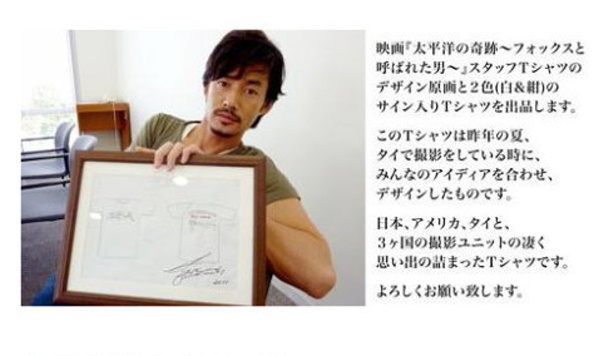 映画『太平洋の奇跡〜フォックスと
呼ばれた男〜』スタッフTシャツの
デザイン原画と2色(白&紺)の
サイン入りTシャツを出品します。
このTシャツは昨年の夏、
タイで撮影をしている時に、
みんなのアイディアを合わせ、
デザインしたものです。
日本、アメリカ、タイと、
3ヶ国の撮影ユニットの凄く
思い出の詰まったTシャツです。
よろしくお願い致します。